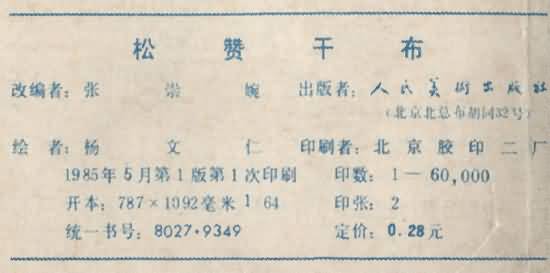 松赞干布
改编者：张崇婉 出版者：人民美術出版社
（北京北总布胡同32号）
绘者：杨文仁 印刷者：北京胶印二厂
1985年5月第1版第1次印刷 印数：1—60,000
开本：787×1092毫米 1 64 印张：2
统一书号：8027·9349 定价：0.28元